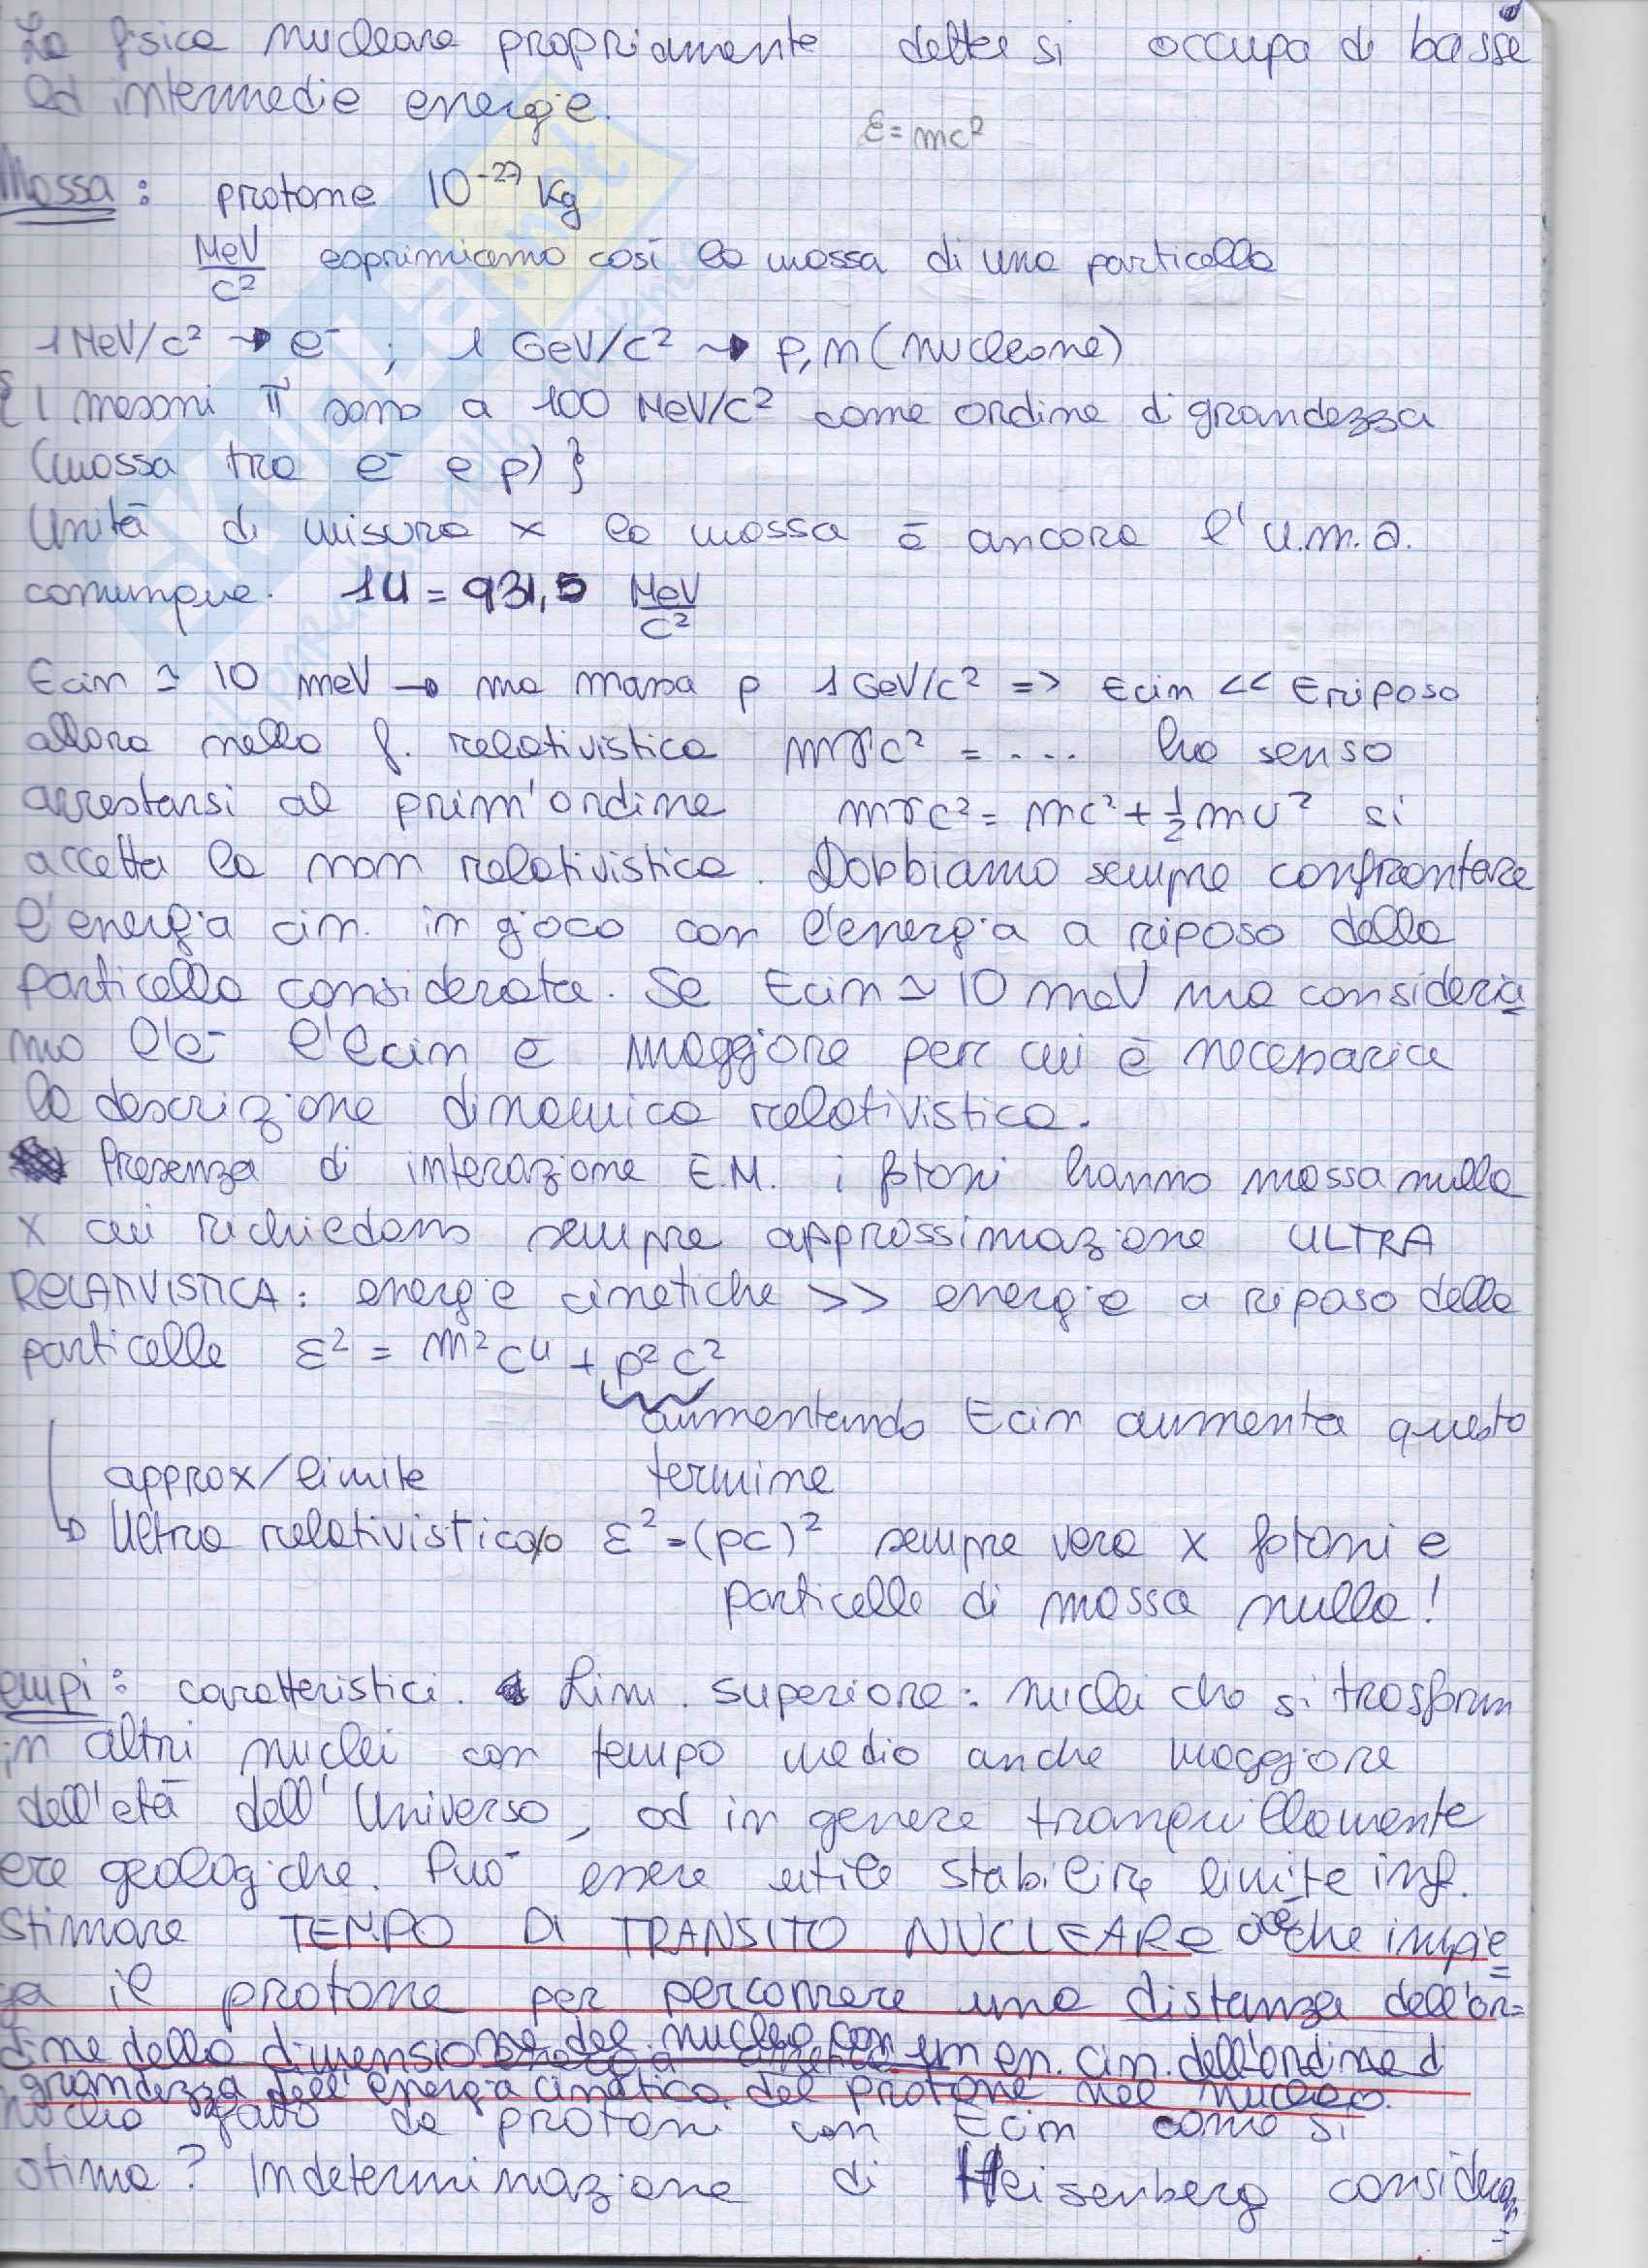 La fisica nucleare propriamente detta si occupa di basse
ed intermedie energie.
ε = mc²
Massa: protone 10⁻²⁷ Kg
MeV/c² esprimiamo così la massa di una particella
1 MeV/c² → e⁻ ; 1 GeV/c² → p, n (nucleone)
{ I mesoni π sono a 100 MeV/c² come ordine di grandezza
(massa tra e⁻ e p) }
Unità di misura x la massa è ancora l'u.m.a.
comunque. 1u = 931,5 MeV/c²
Ecin ≃ 10 meV → ma massa p 1 GeV/c² => Ecin << Eriposo
allora nella f. relativistica mγc² = .... ha senso
arrestarsi al prim'ordine mγc² = mc² + ½mv² si
accetta la non relativistica. Dobbiamo sempre confrontare
l'energia cin. in gioco con l'energia a riposo della
particella considerata. Se Ecin ≃ 10 meV ma consideria
mo l'e⁻ l'Ecin è maggiore per cui è necessaria
la descrizione dinamica relativistica.
Presenza di interazione E.M. i fotoni hanno massa nulla
x cui richiedono sempre approssimazione ULTRA
RELATIVISTICA: energie cinetiche >> energie a riposo delle
particelle ε² = m²c⁴ + p²c²
aumentando Ecin aumenta questo
approx/limite termine
Ultra relativistica/o ε² = (pc)² sempre vera x fotoni e
particelle di massa nulla!
empi: caratteristici. Lim. superiore: nuclei che si trasform
in altri nuclei con tempo medio anche maggiore
dell'età dell'Universo, od in genere tranquillamente
ere geologiche. Può essere utile stabilire limite inf.
Stimare TEMPO DI TRANSITO NUCLEARE cioè che impie
ga il protone per percorrere una distanza dell'or=
dine della dimensione del nucleo con un en. cin. dell'ordine di
grandezza dell'energia cinetica del protone nel nucleo.
nucleo fatto da protoni con Ecin come si
stima? Indeterminazione di Heisenberg consideran